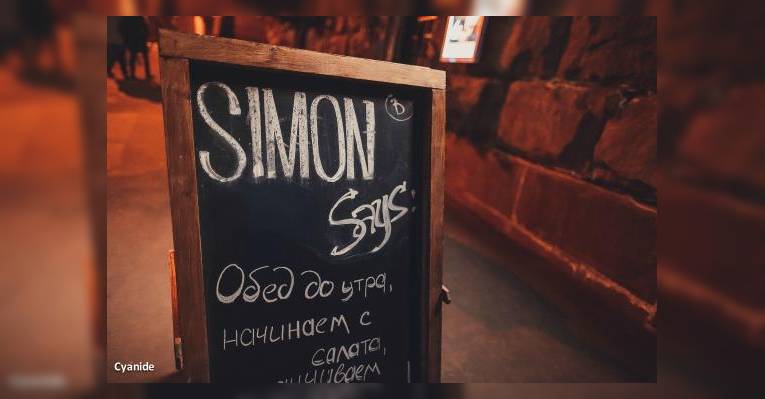 SIMON
Says:
Обед до утра,
начинаем с
салата,
Cyanide